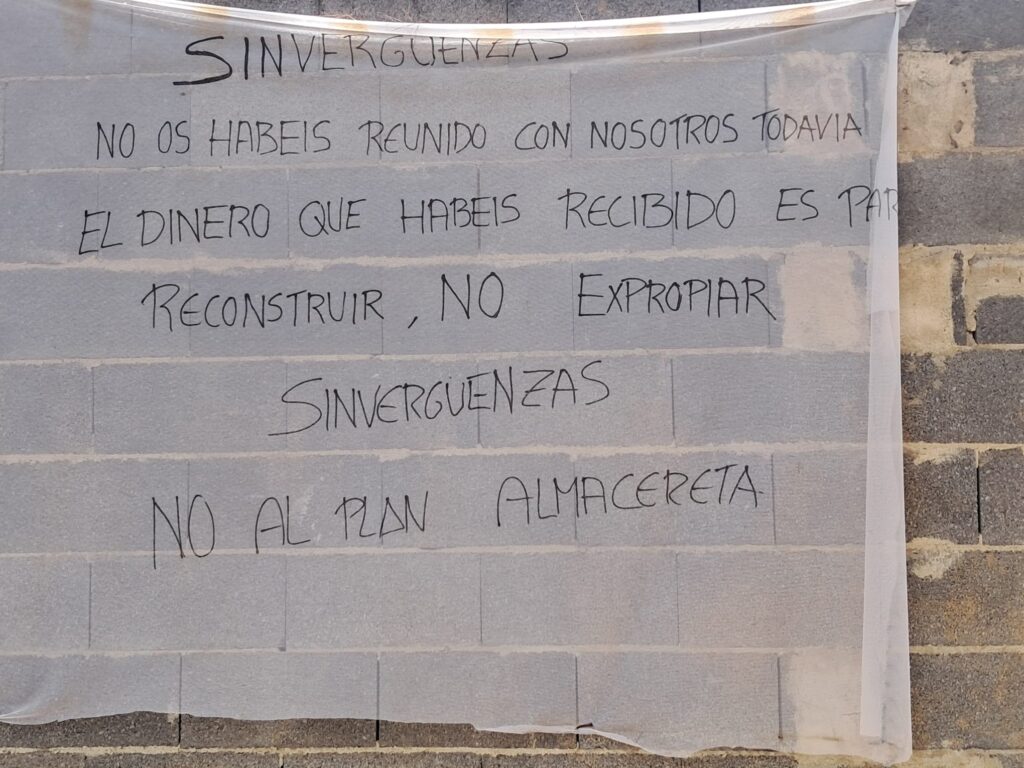 SINVERGÜENZAS
NO OS HABEIS REUNIDO CON NOSOTROS TODAVIA
EL DINERO QUE HABEIS RECIBIDO ES PAR
RECONSTRUIR, NO EXPROPIAR
SINVERGÜENZAS
NO AL PLAN ALMACERETA